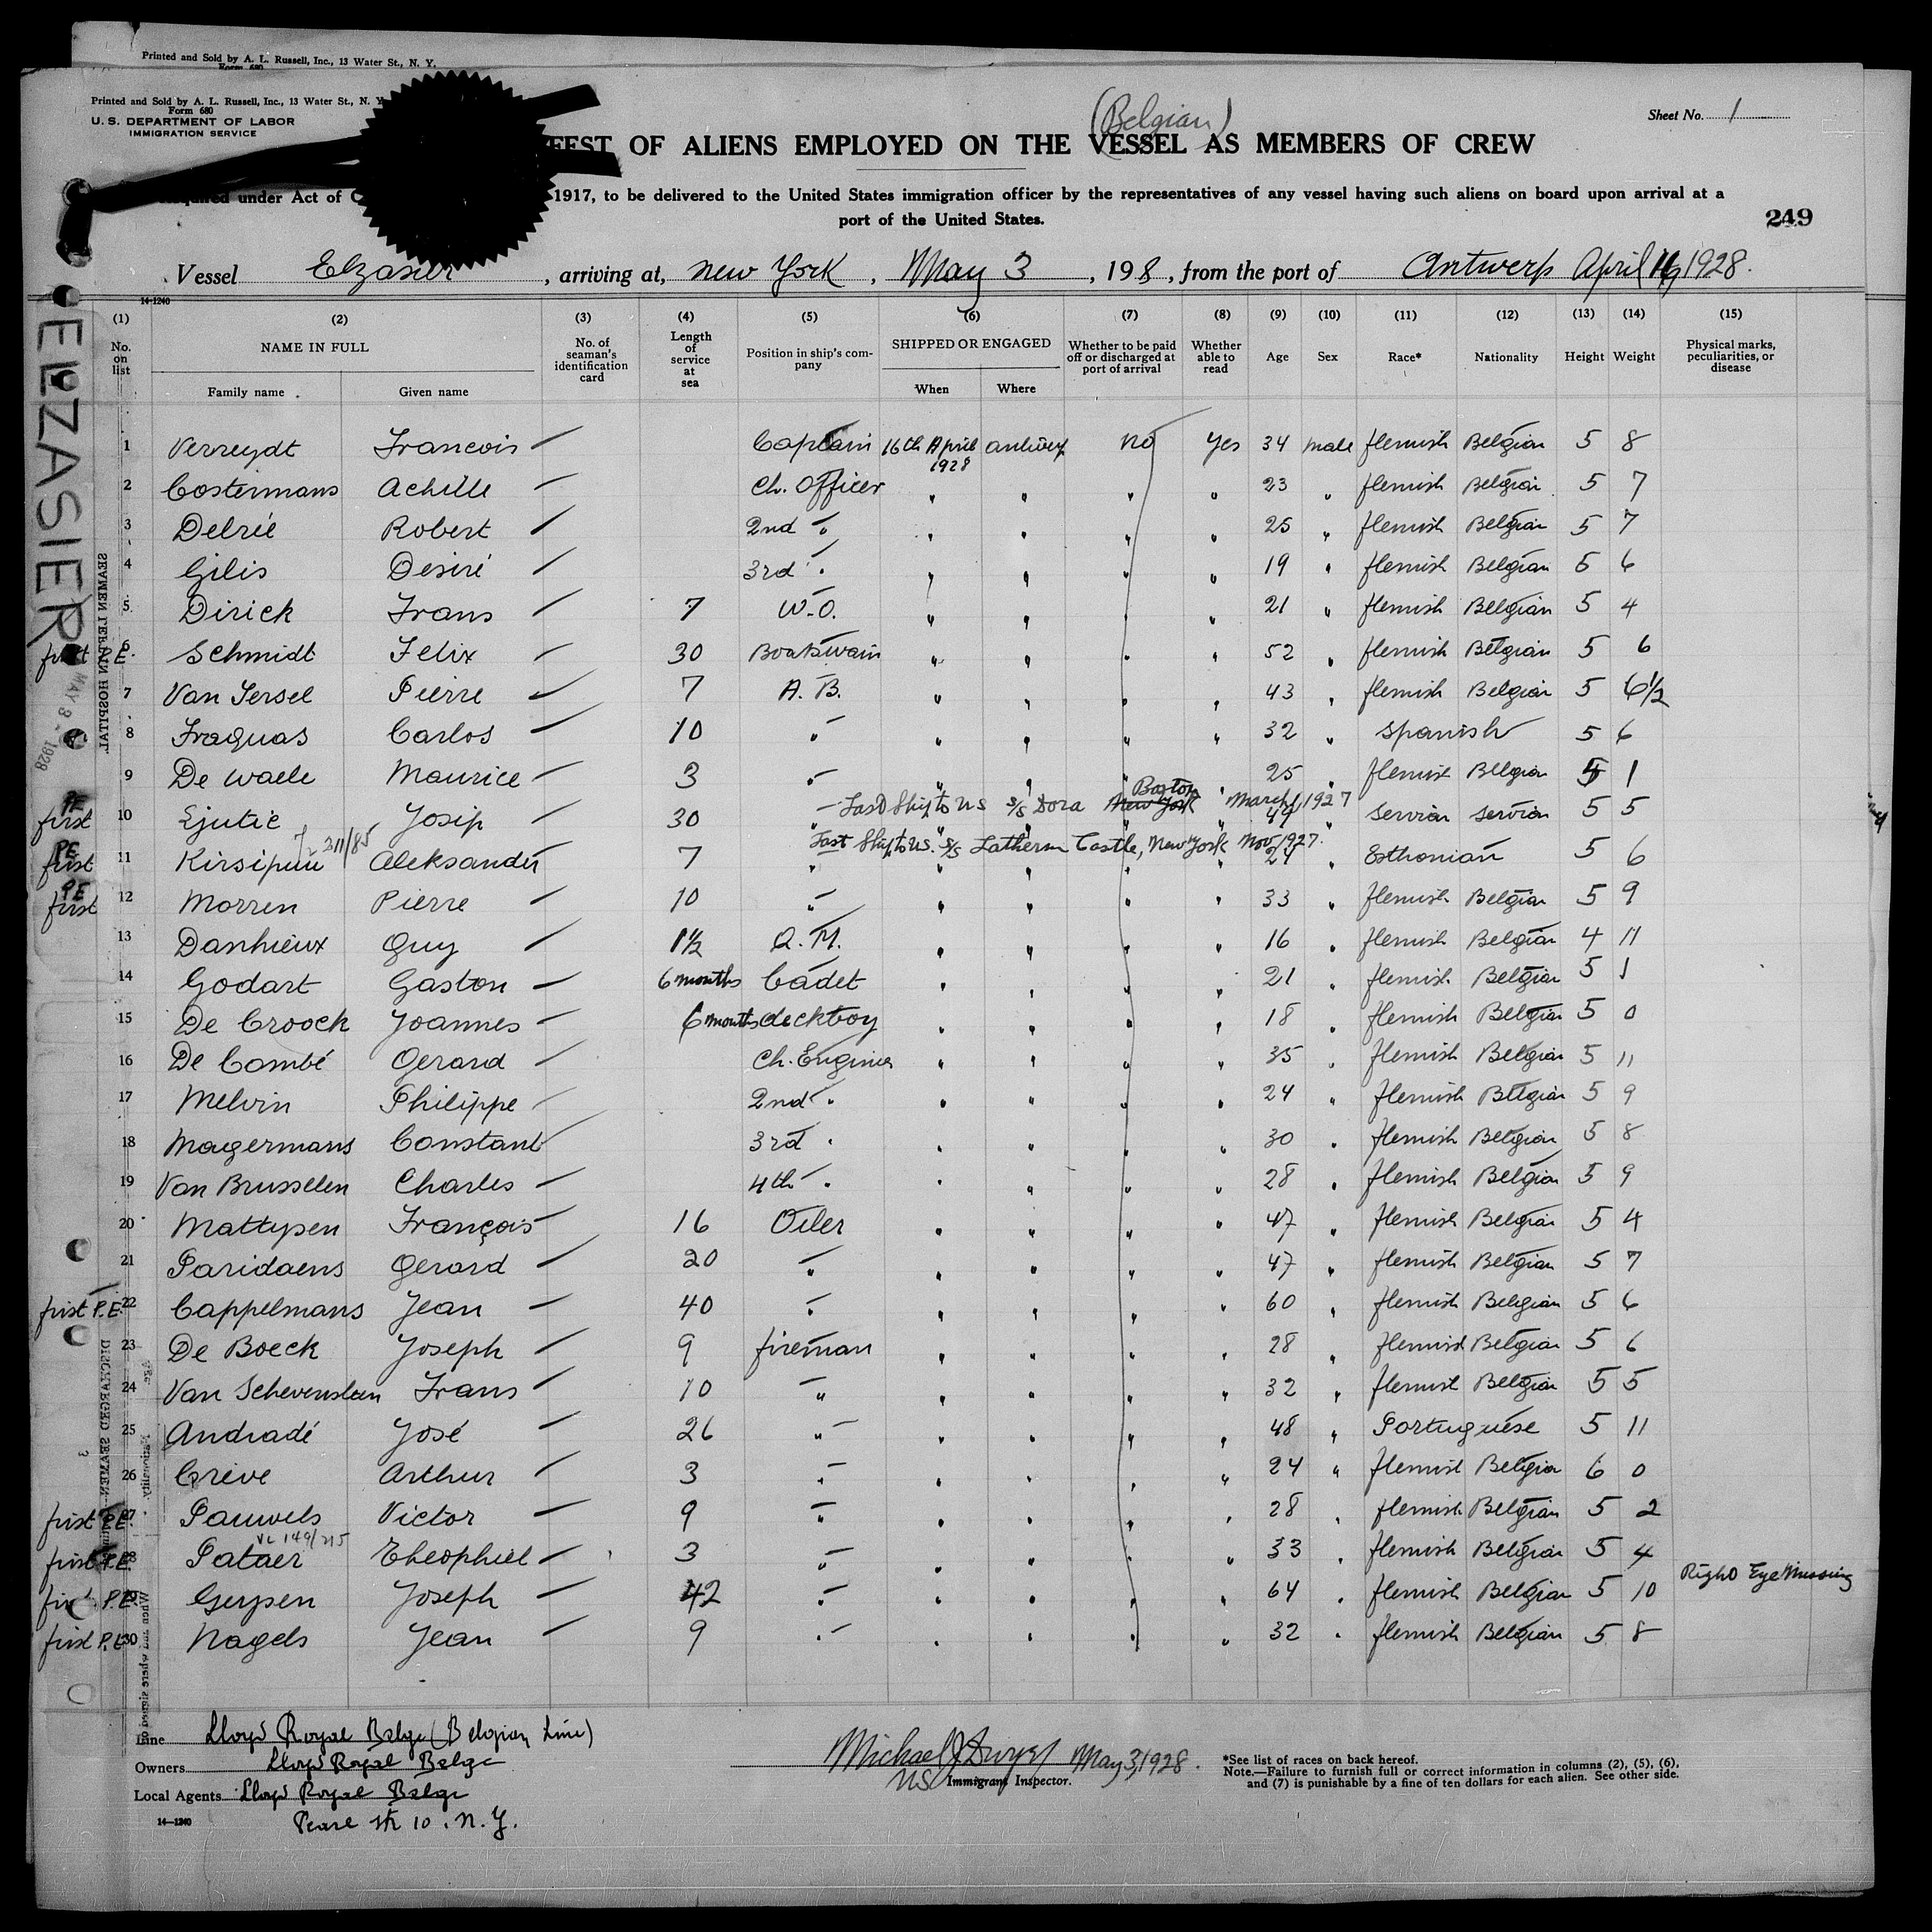 Printed and Sold by A. L. Russell, Inc., 13 Water St., N. Y.
Form 680
Printed and Sold by A. L. Russell, Inc., 13 Water St., N. Y.
Form 680
U. S. DEPARTMENT OF LABOR
IMMIGRATION SERVICE
(Belgian)
Sheet No. 1
FEST OF ALIENS EMPLOYED ON THE VESSEL AS MEMBERS OF CREW
under Act of 1917, to be delivered to the United States immigration officer by the representatives of any vessel having such aliens on board upon arrival at a
port of the United States.
249
Vessel Elzasier, arriving at, New York, May 3, 1928, from the port of Antwerp April 16, 1928.
14-1240
(1) (2) (3) (4) (5) (6) (7) (8) (9) (10) (11) (12) (13) (14) (15)
No. on list NAME IN FULL No. of seaman's identification card Length of service at sea Position in ship's company SHIPPED OR ENGAGED Whether to be paid off or discharged at port of arrival Whether able to read Age Sex Race* Nationality Height Weight Physical marks, peculiarities, or disease
Family name Given name When Where
1 Verreydt Francois Captain 16th April 1928 Antwerp no yes 34 male flemish Belgian 5 8
2 Costermans Achille Ch. Officer " " " " 23 " flemish Belgian 5 7
3 Delrié Robert 2nd " " " " " 25 " flemish Belgian 5 7
4 Gilis Desiré 3rd " " " " " 19 " flemish Belgian 5 6
5 Dirick Frans 7 W.O. " " " " 21 " flemish Belgian 5 4
first P.E. 6 Schmidt Felix 30 Boatswain " " " " 52 " flemish Belgian 5 6
7 Van Iersel Pierre 7 A. B. " " " " 43 " flemish Belgian 5 6½
8 Fraguas Carlos 10 " " " " " 32 " Spanish 5 6
9 De Waele Maurice 3 " " " " " 25 " flemish Belgian 5 1
Last Ship to US S/S Dora New York Boston March 1, 1927
first PE 10 Ejutic Josip 30 " " " " " 49 " Servian Servian 5 5
211/85
Last Ship to US. S/S Castle, New York Nov 1927.
first PE 11 Kirsipuu Aleksander 7 " " " " " 24 " Esthonian 5 6
first PE 12 Morren Pierre 10 " " " " " 33 " flemish Belgian 5 9
13 Danhieux Guy 1½ Q. M. " " " " 16 " flemish Belgian 4 11
14 Godart Gaston 6 months Cadet " " " " 21 " flemish Belgian 5 1
15 De Croock Joannes 6 months deckboy " " " " 18 " flemish Belgian 5 0
16 De Combé Gerard Ch. Engineer " " " " 35 " flemish Belgian 5 11
17 Melvin Philippe 2nd " " " " " 24 " flemish Belgian 5 9
18 Magermans Constant 3rd " " " " " 30 " flemish Belgian 5 8
19 Van Brusselen Charles 4th " " " " " 28 " flemish Belgian 5 9
20 Mattysen François 16 Oiler " " " " 47 " flemish Belgian 5 4
21 Paridaens Gerard 20 " " " " " 47 " flemish Belgian 5 7
first P.E. 22 Cappelmans Jean 40 " " " " " 60 " flemish Belgian 5 6
23 De Boeck Joseph 9 fireman " " " " 28 " flemish Belgian 5 6
24 Van Schevensteen Frans 10 " " " " " 32 " flemish Belgian 5 5
25 Andradé José 26 " " " " " 48 " Portuguese 5 11
26 Crève Arthur 3 " " " " " 24 " flemish Belgian 6 0
first P.E. 27 Pauwels Victor 9 " " " " " 28 " flemish Belgian 5 2
149/215
first P.E. 28 Pataer Theophiel 3 " " " " " 33 " flemish Belgian 5 4
first P.E. 29 Geypen Joseph 42 " " " " " 64 " flemish Belgian 5 10 Right Eye Missing
first P.E. 30 Nagels Jean 9 " " " " " 32 " flemish Belgian 5 8
ELZASIER
MAY 3 - 1928
SEAMEN LEFT IN HOSPITAL
DISCHARGED SEAMEN
Line Lloyd Royal Belge (Belgian Line)
Owners Lloyd Royal Belge
Local Agents Lloyd Royal Belge
Pearl str 10. N.Y.
14-1240
Michael J Dwyer May 3, 1928.
US Immigrant Inspector.
*See list of races on back hereof.
Note.—Failure to furnish full or correct information in columns (2), (5), (6),
and (7) is punishable by a fine of ten dollars for each alien. See other side.